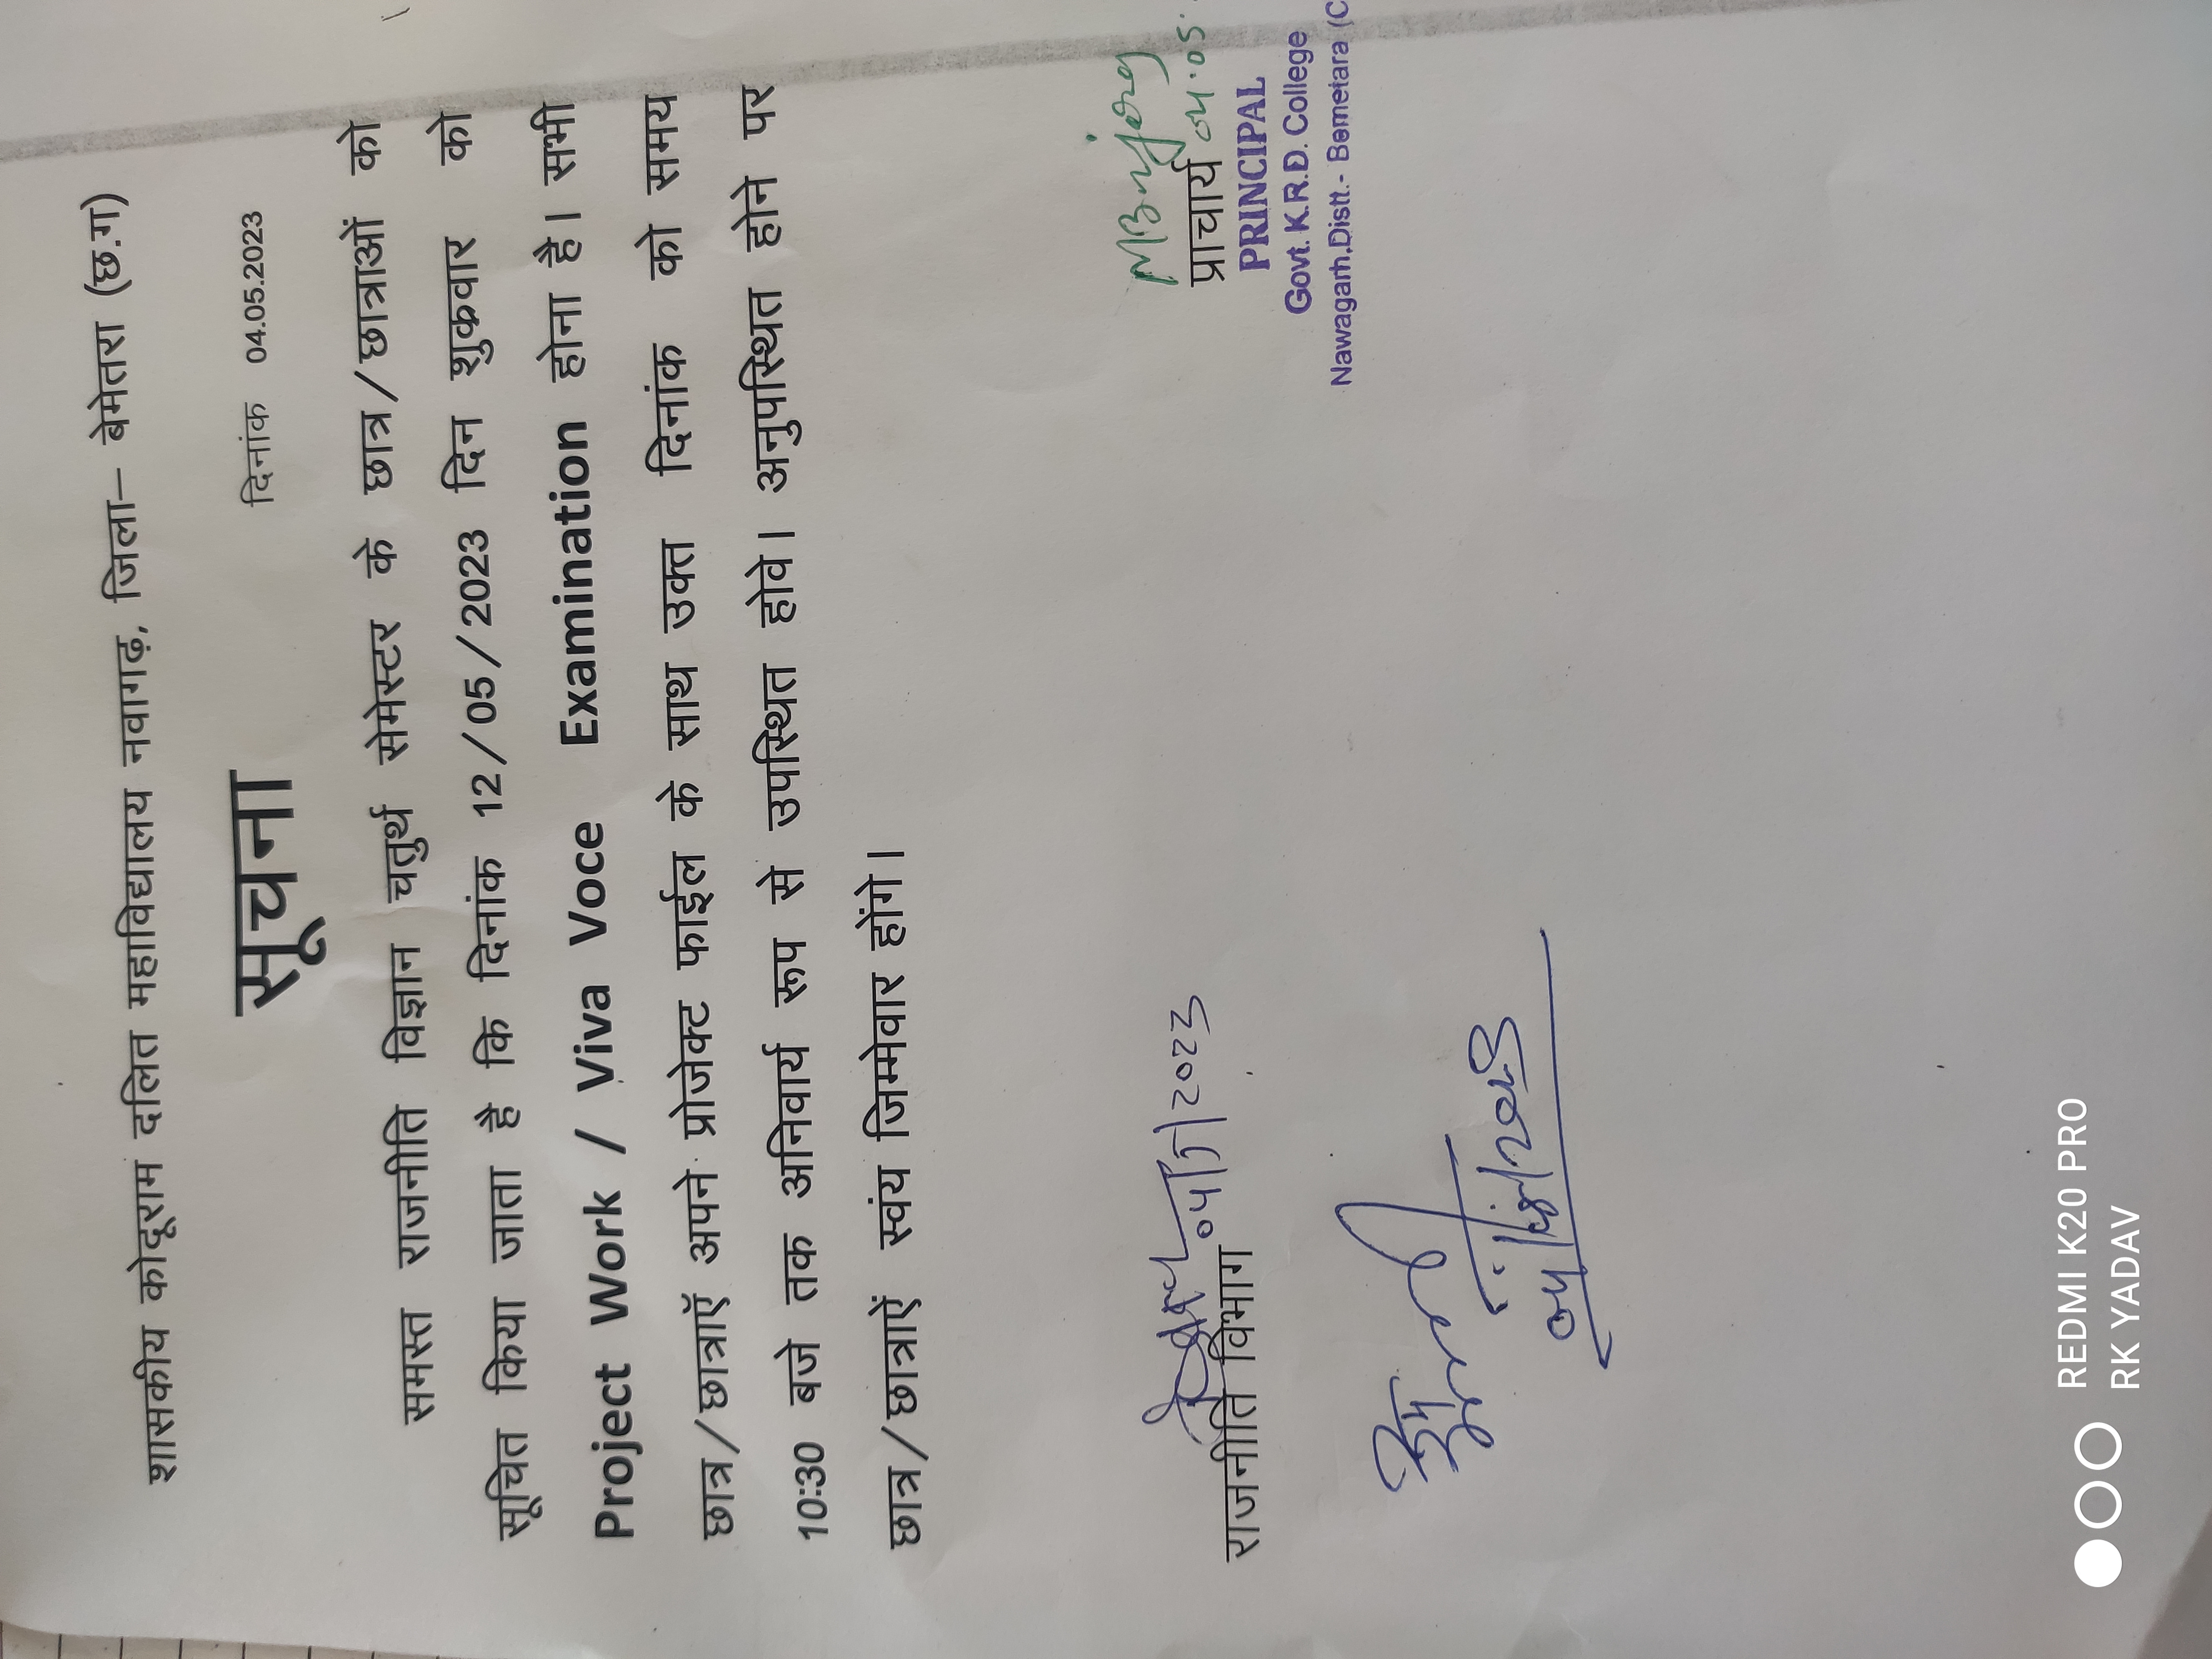 शासकीय कोदूराम दलित महाविद्यालय नवागढ़, जिला– बेमेतरा (छ.ग)
दिनांक 04.05.2023
सूचना
समस्त राजनीति विज्ञान चतुर्थ सेमेस्टर के छात्र/छात्राओं को
सूचित किया जाता है कि दिनांक 12/05/2023 दिन शुक्रवार को
Project Work / Viva Voce Examination होना है। सभी
छात्र/छात्राऍं अपने प्रोजेक्ट फाईल के साथ उक्त दिनांक को समय
10:30 बजे तक अनिवार्य रूप से उपस्थित होवे। अनुपस्थित होने पर
छात्र/छात्राऍं स्वंय जिम्मेवार होंगे।
04/5/2023
राजनीति विभाग
04/05/2023
प्राचार्य 04.05.
PRINCIPAL
Govt. K.R.D. College
Nawagarh,Distt.- Bemetara (C
REDMI K20 PRO
RK YADAV